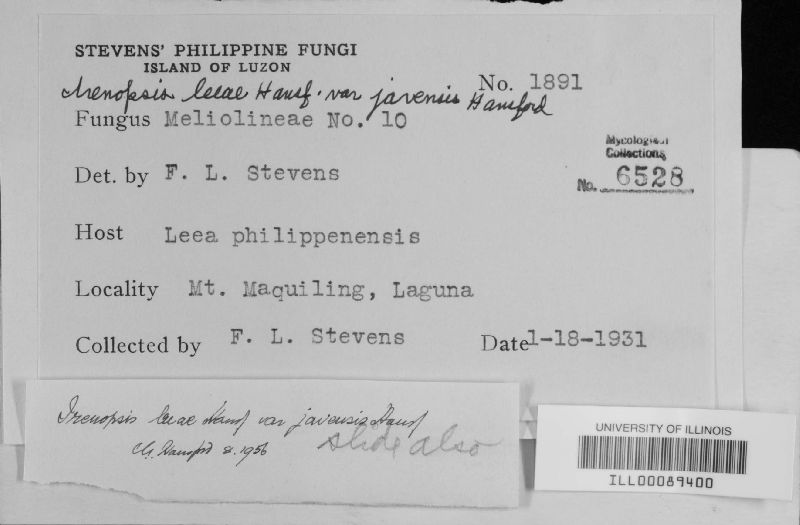 STEVENS' PHILIPPINE FUNGI
ISLAND OF LUZON
No. 1891
Irenopsis leeae Hansf. var javensis Hansford
Fungus Meliolineae No. 10
Mycological
Collections
No. 6528
Det. by F. L. Stevens
Host Leea philippenensis
Locality Mt. Maquiling, Laguna
Collected by F. L. Stevens Date 1-18-1931
Irenopsis leeae Hansf var javensis Hansf
Hansford 2.1956
slide also
UNIVERSITY OF ILLINOIS
ILL00089400